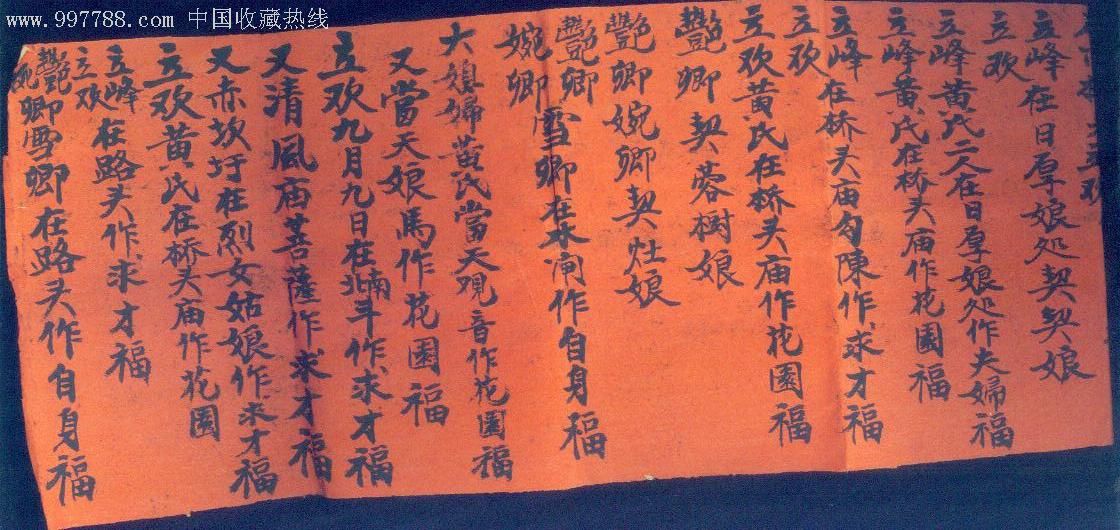 www.997788.com 中国收藏热线
立峰在日厚娘处契契娘
立欢
立峰黄氏二人在日厚娘处作夫婦福
立峰黄氏在桥头庙作花园福
立峰在桥头庙勾陳作求才福
立欢
立欢黄氏在桥头庙作花园福
艷卿契蓉樹娘
艷卿婉卿契灶娘
艷卿雪卿在水闸作自身福
婉卿
大媳婦黄氏當天观音作花園福
又當天娘馬作花園福
立欢九月九日在南斗作求才福
又清風庙菩薩作求才福
又赤坎圩在烈女姑娘作求才福
立欢黄氏在桥头庙作花园
立峰在路头作求才福
立欢
艷卿雪卿在路头作自身福
婉卿